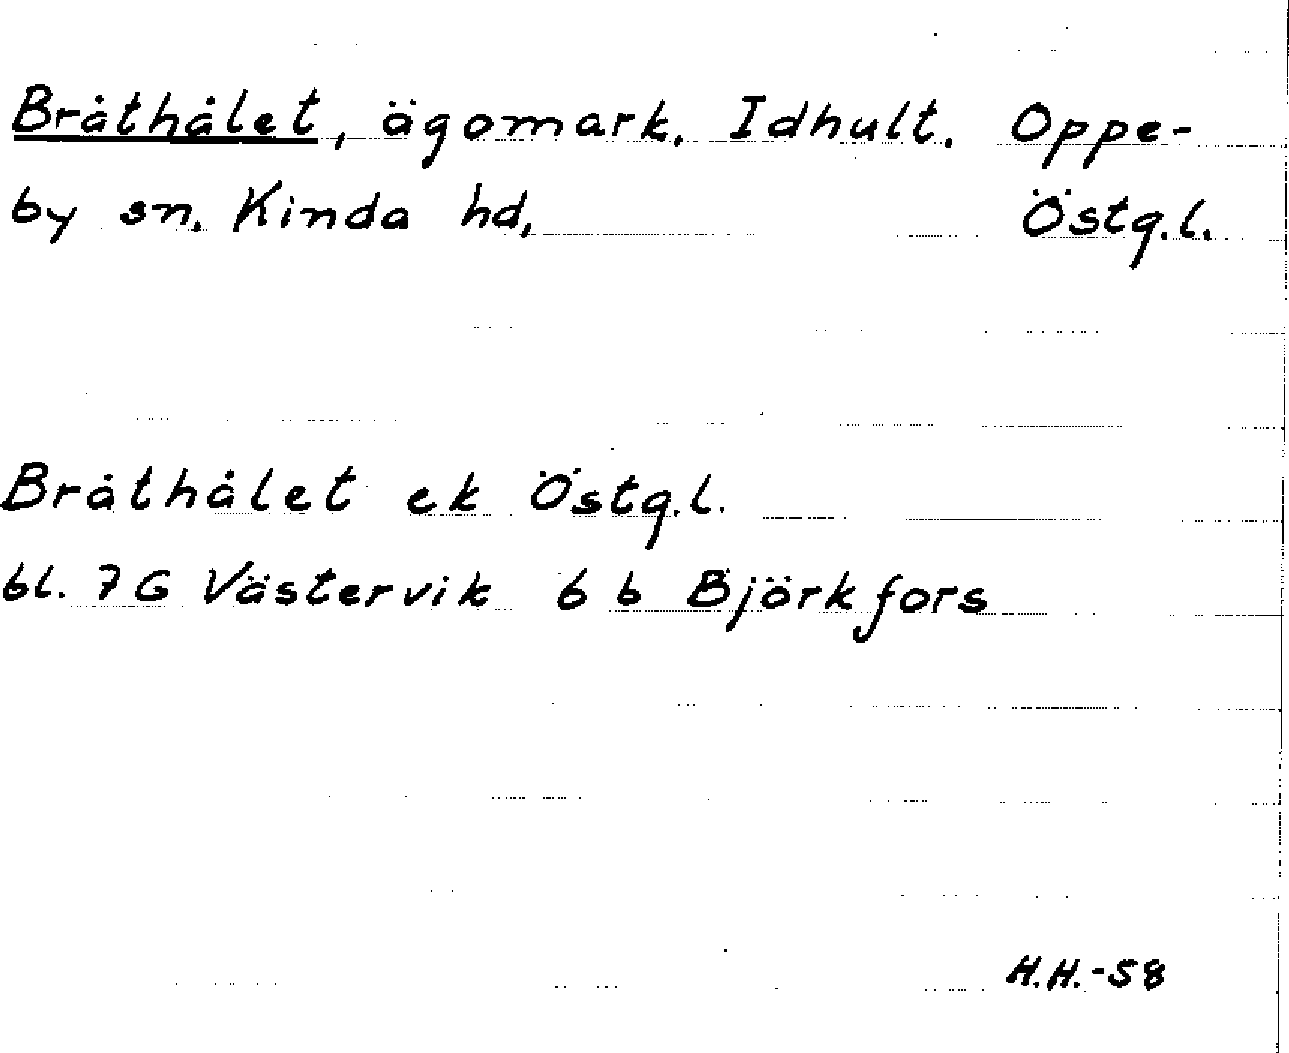 Bråthålet, ägomark. Idhult. Oppe-
by sn. Kinda hd, Östg.l.
Bråthålet ek Östg.l.
bl. 7G Västervik 6 b Björkfors
H.H.-58